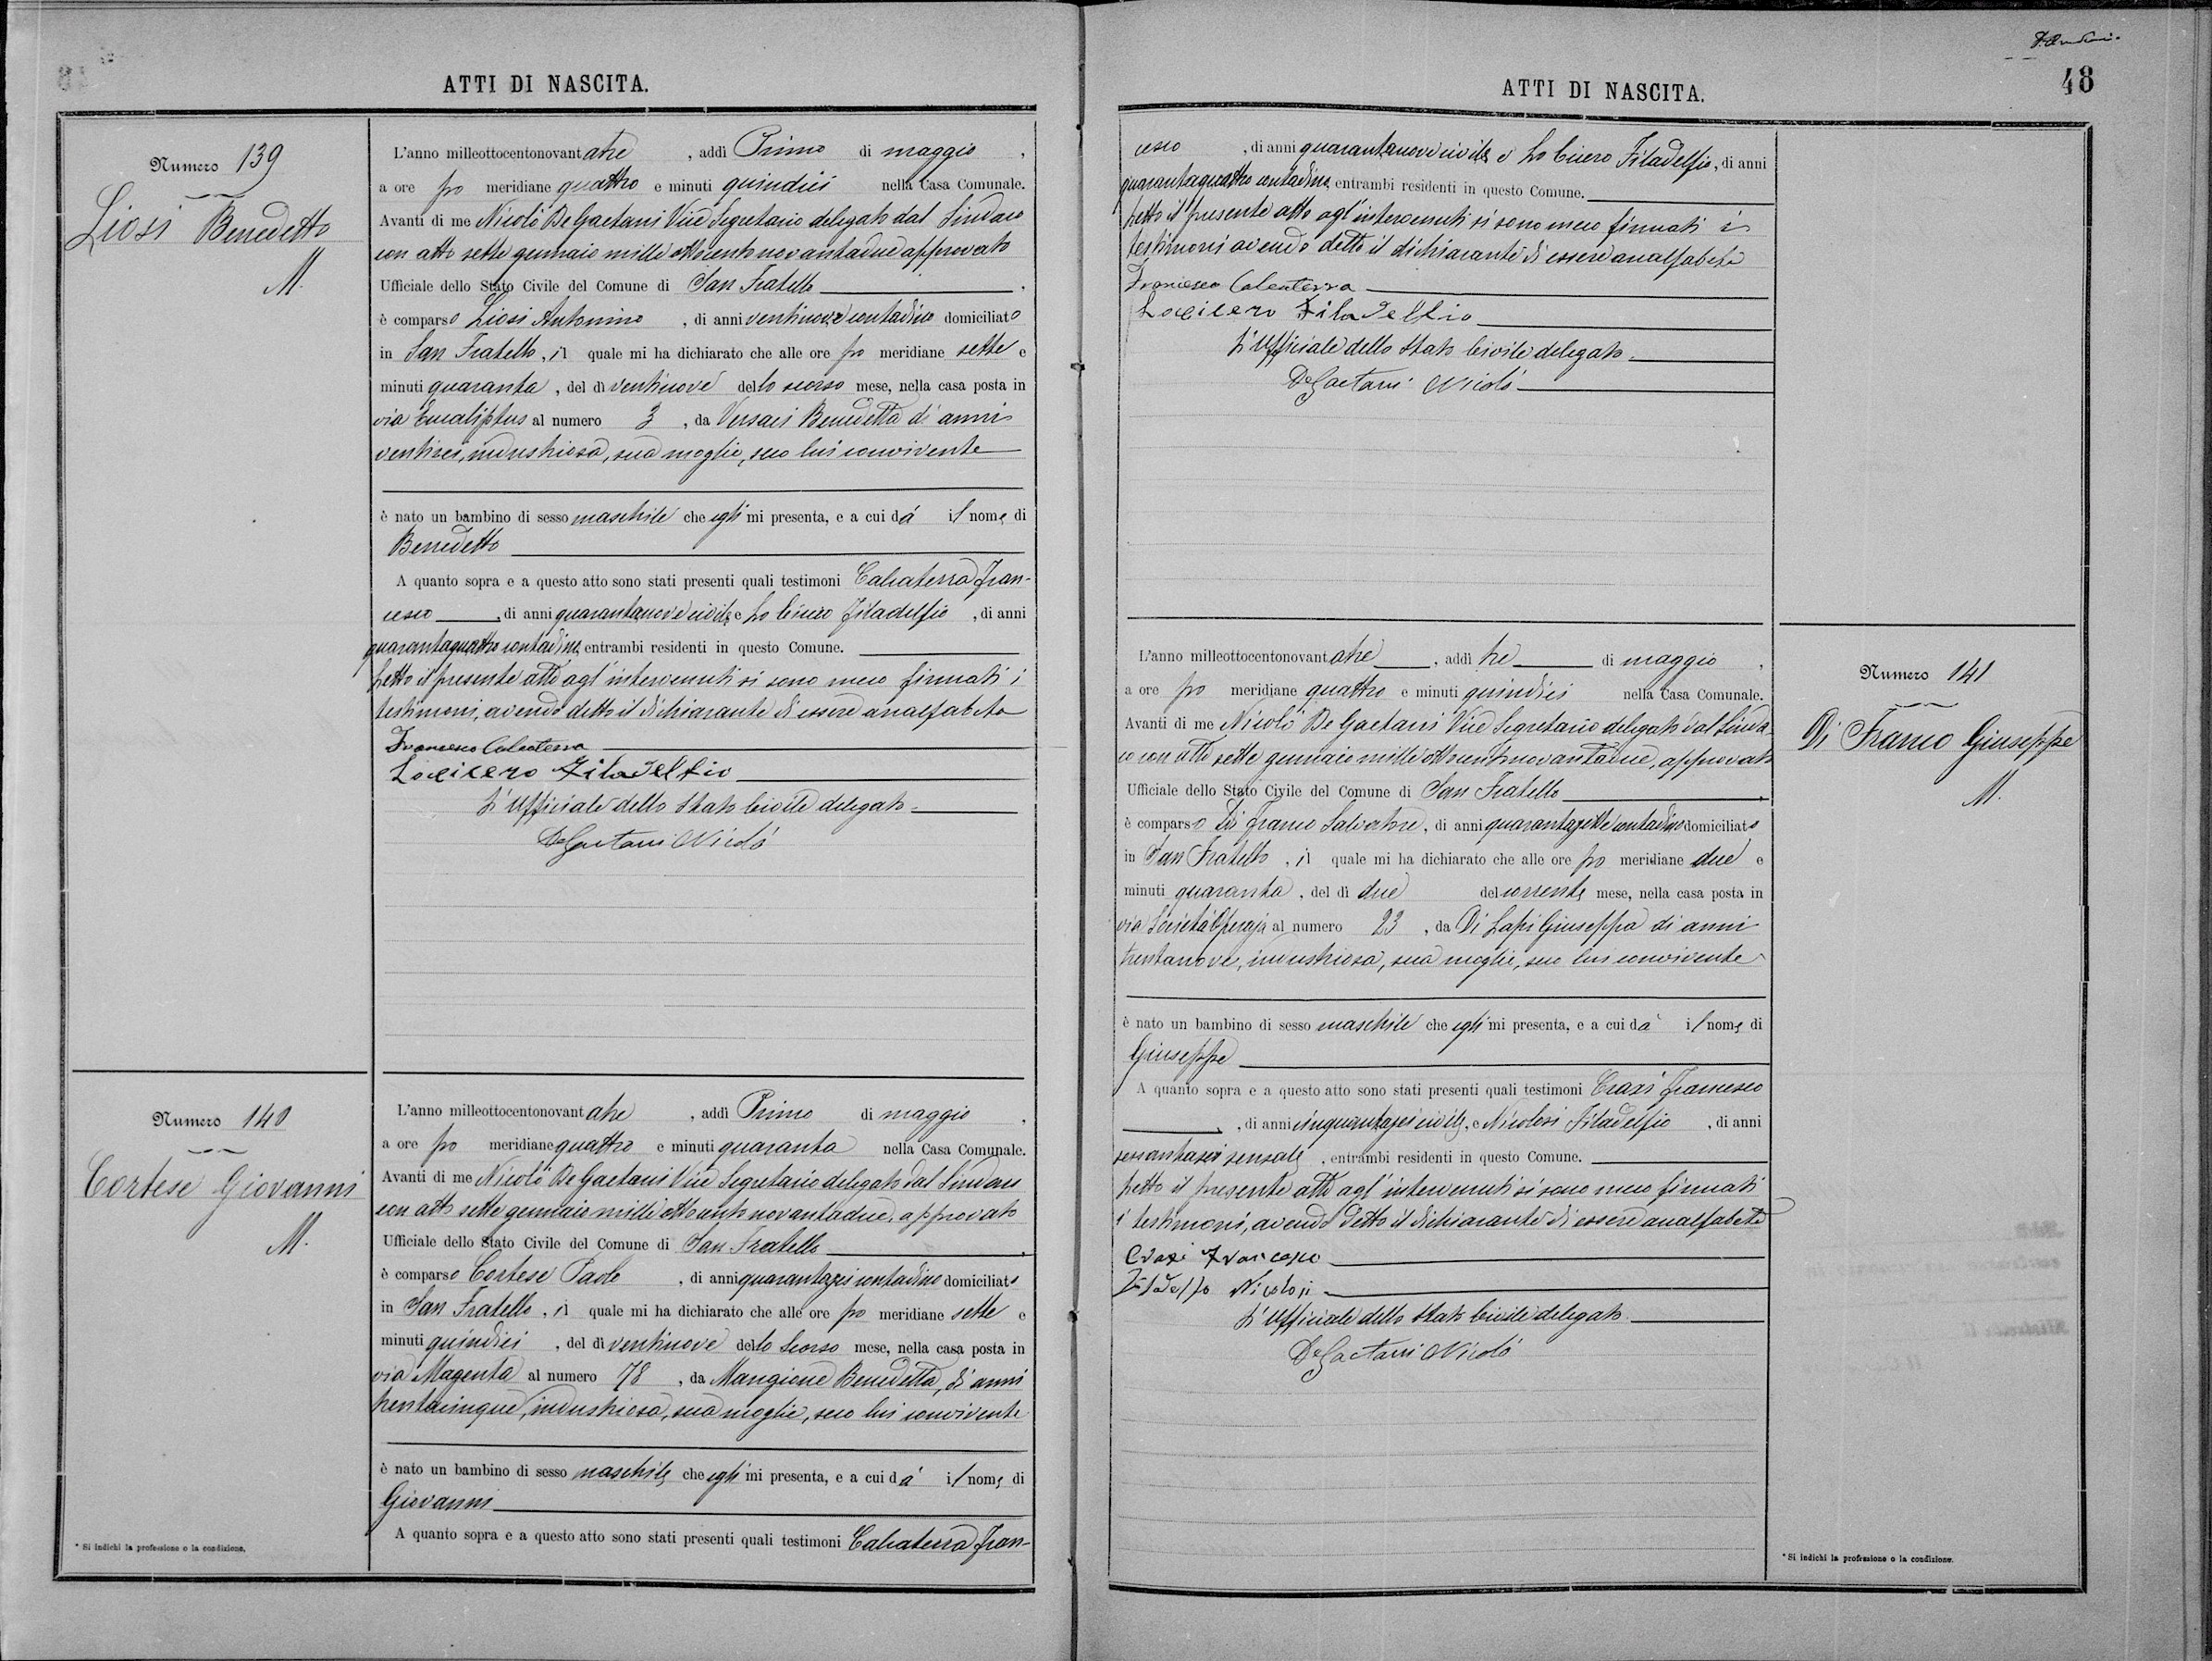 ATTI DI NASCITA.
Numero 139
Liosi Benedetto
M.
L'anno milleottocentonovantatre, addì Primo di maggio,
a ore po meridiane quattro e minuti quindici nella Casa Comunale.
Avanti di me Nicolò De Gaetani Vice Segretario delegato dal Sindaco
con atto sette gennaio mille ottocento novantadue approvato
Ufficiale dello Stato Civile del Comune di San Fratello.
è comparso Liosi Antonino, di anni ventinove contadino domiciliato
in San Fratello, il quale mi ha dichiarato che alle ore po meridiane sette e
minuti quaranta, del dì ventinove dello scorso mese, nella casa posta in
via Eucaliptus al numero 3, da Versaci Benedetta di anni
ventisei, industriosa, sua moglie, seco lui convivente
è nato un bambino di sesso maschile che egli mi presenta, e a cui dà il nome di
Benedetto
A quanto sopra e a questo atto sono stati presenti quali testimoni Calcaterra Fran-
cesco, di anni quarantanove civile e Lo Cicero Filadelfio, di anni
quarantaquattro contadino, entrambi residenti in questo Comune.
Letto il presente atto agl'intervenuti si sono meco firmati i
testimoni, avendo detto il dichiarante di essere analfabeta
Francesco Calcaterra
Locicero Filadelfio
L'Ufficiale dello Stato Civile delegato
De Gaetani Nicolò
Numero 140
Cortese Giovanni
M.
L'anno milleottocentonovantatre, addì Primo di maggio,
a ore po meridiane quattro e minuti quaranta nella Casa Comunale.
Avanti di me Nicolò De Gaetani Vice Segretario delegato dal Sindaco
con atto sette gennaio mille ottocento novantadue, approvato
Ufficiale dello Stato Civile del Comune di San Fratello,
è comparso Cortese Paolo, di anni quarantasei contadino domiciliato
in San Fratello, il quale mi ha dichiarato che alle ore po meridiane sette e
minuti quindici, del dì ventinove dello scorso mese, nella casa posta in
via Magenta al numero 78, da Mangione Benedetta, di anni
trentacinque, industriosa, sua moglie, seco lui convivente
è nato un bambino di sesso maschile che egli mi presenta, e a cui dà il nome di
Giovanni
A quanto sopra e a questo atto sono stati presenti quali testimoni Calcaterra Fran-
* Si indichi la professione o la condizione.
48
ATTI DI NASCITA.
cesco, di anni quarantanove civile e Lo Cicero Filadelfio, di anni
quarantaquattro contadino, entrambi residenti in questo Comune.
Letto il presente atto agl'intervenuti si sono meco firmati i
testimoni avendo detto il dichiarante di essere analfabeta
Francesco Calcaterra
Locicero Filadelfio
L'Ufficiale dello Stato Civile delegato
De Gaetani Nicolò
Numero 141
Di Franco Giuseppe
M.
L'anno milleottocentonovantatre, addì tre di maggio,
a ore po meridiane quattro e minuti quindici nella Casa Comunale.
Avanti di me Nicolò De Gaetani Vice Segretario delegato dal Sinda-
co con atto sette gennaio mille ottocento novantadue, approvato
Ufficiale dello Stato Civile del Comune di San Fratello,
è comparso Di Franco Salvatore, di anni quarantasette contadino domiciliato
in San Fratello, il quale mi ha dichiarato che alle ore po meridiane due e
minuti quaranta, del dì due del corrente mese, nella casa posta in
via Società Operaja al numero 23, da Di Lapi Giuseppa di anni
trentanove, industriosa, sua moglie, seco lui convivente
è nato un bambino di sesso maschile che egli mi presenta, e a cui dà il nome di
Giuseppe
A quanto sopra e a questo atto sono stati presenti quali testimoni Crazi Francesco
, di anni cinquantasei civile, e Nicolosi Filadelfio, di anni
sessantasei sensale, entrambi residenti in questo Comune.
Letto il presente atto agl'intervenuti si sono meco firmati
i testimoni, avendo detto il dichiarante di essere analfabeta
Crazi Francesco
Nicolosi
L'Ufficiale dello Stato Civile delegato
De Gaetani Nicolò
* Si indichi la professione o la condizione.